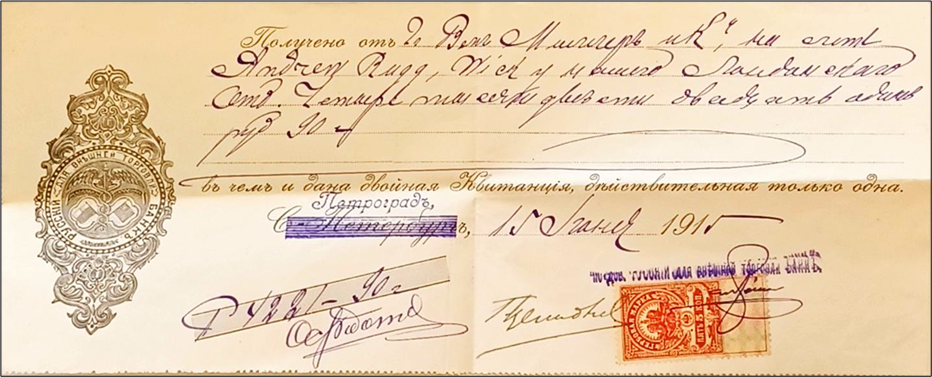 Получено отъ Вог Миллеръ и Кº, на счетъ
Андrew Rugg, Wick у нашего Лондонскаго
Отд. Четыре тысячи двѣсти двадцать одинъ
руб 90
въ чемъ и дана двойная Квитанція, дѣйствительная только одна.
Петроградъ,
С-Петербургъ, 15 1915
РУССКІЙ ДЛЯ ВНѢШНЕЙ ТОРГОВЛИ БАНКЪ
РУССКІЙ ДЛЯ ВНѢШНЕЙ ТОРГОВЛИ БАНКЪ
Р 4221-90